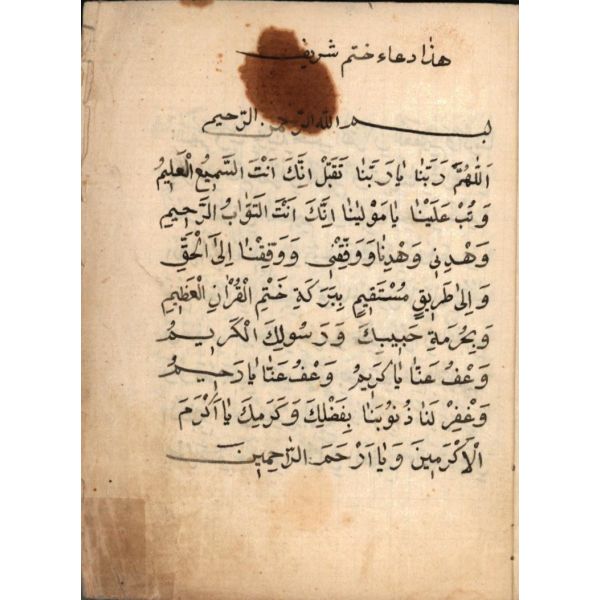 هذا دعاء ختم شريف
بسم الله الرحمن الرحيم
اَللّٰهُمَّ رَبَّنَا يَا رَبَّنَا تَقَبَّلْ اِنَّكَ اَنْتَ السَّمِيعُ الْعَلِيمُ
وَتُبْ عَلَيْنَا يَا مَوْلٰينَا اِنَّكَ اَنْتَ التَّوَّابُ الرَّحِيمِ
وَهْدِنِى وَهْدِنَا وَوَفِّقْنِى وَوَفِّقْنَا اِلَى الْحَقِّ
وَاِلٰى طَرِيقٍ مُسْتَقِيمٍ بِبَرَكَةِ خَتْمِ الْقُرْاٰنِ الْعَظِيمِ
وَبِحُرْمَةِ حَبِيبِكَ وَرَسُولِكَ الْكَرِيمُ
وَعْفُ عَنَّا يَا كَرِيمُ وَعْفُ عَنَّا يَا رَحِيمُ
وَغْفِرْ لَنَا ذُنُوبَنَا بِفَضْلِكَ وَكَرَمِكَ يَا اَكْرَمَ
الْاَكْرَمِينَ وَيَا اَرْحَمَ الرَّاحِمِينَ